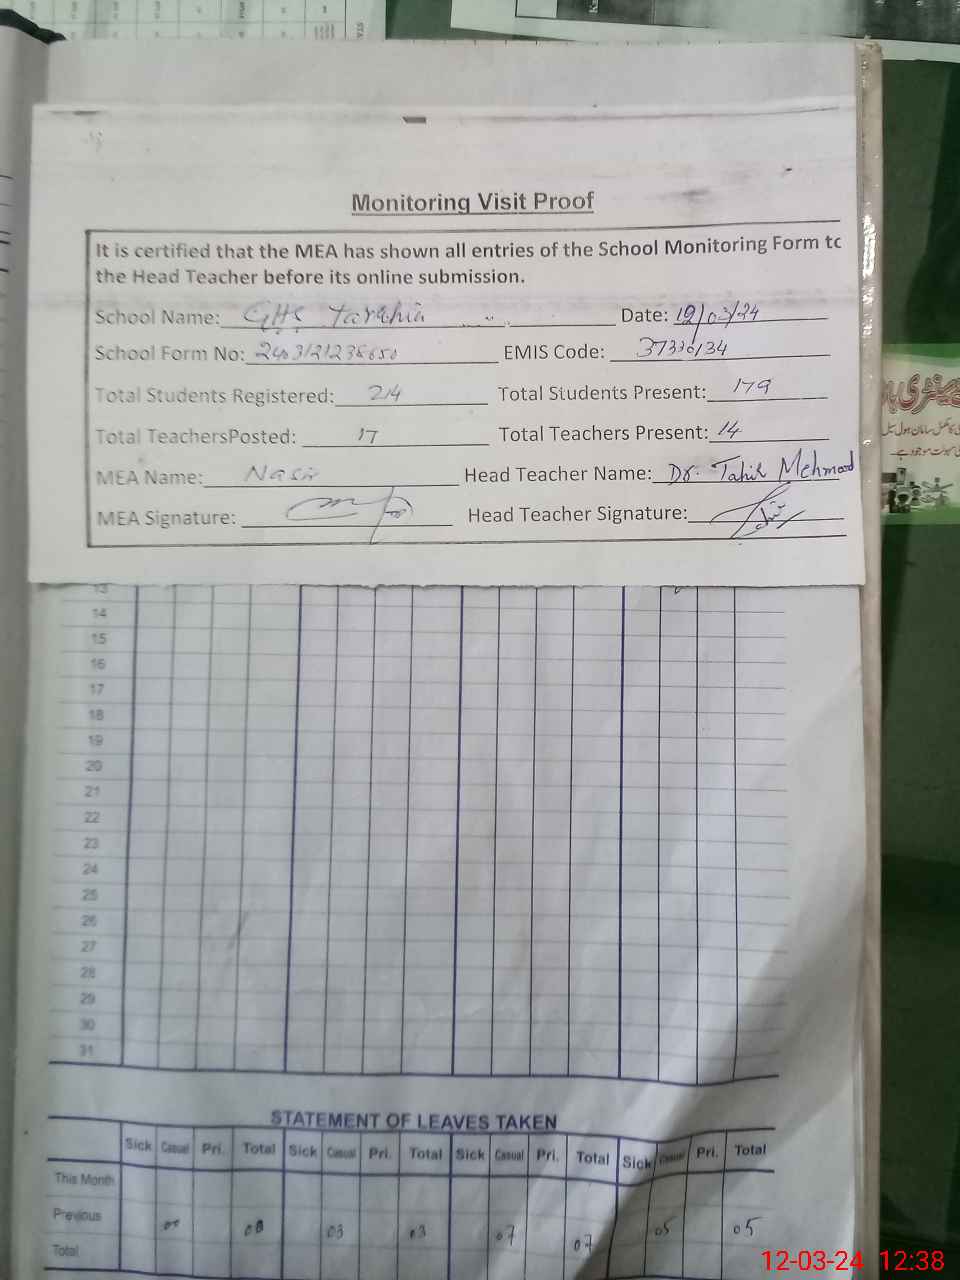 Monitoring Visit Proof
It is certified that the MEA has shown all entries of the School Monitoring Form to
the Head Teacher before its online submission.
School Name: GHS Tarkhia Date: 12/03/24
School Form No: EMIS Code: 37330134
Total Students Registered: 214 Total Students Present: 179
Total TeachersPosted: 17 Total Teachers Present: 14
MEA Name: Nasir Head Teacher Name: Dr. Tahir Mehmood
MEA Signature: Head Teacher Signature:
13
14
15
16
17
18
19
20
21
22
23
24
25
26
27
28
29
30
31
STATEMENT OF LEAVES TAKEN
Sick Casual Pri. Total Sick Casual Pri. Total Sick Casual Pri. Total Sick Casual Pri. Total
This Month
Previous 03 03 07 07 05 05
Total
12-03-24 12:38